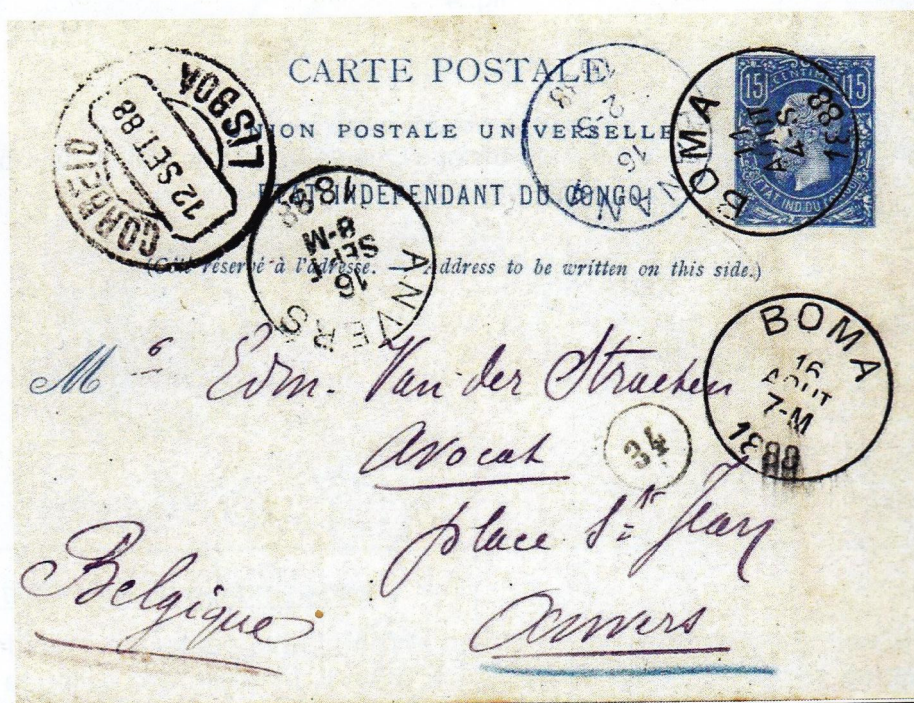 CARTE POSTALE
UNION POSTALE UNIVERSELLE
ÉTAT INDÉPENDANT DU CONGO
(Côté réservé à l'adresse. — Address to be written on this side.)
15 CENTIMES 15
ETAT IND. DU CONGO
BOMA
11
AOUT
4-S
1888
CORREIO
12 SET 88
LISBOA
ANVERS
16
SEPT
8-M
1888
16
BOMA
16
AOUT
7-M
1888
34
Mr Edm. Van der Straeten
Avocat
place St Jean
Anvers
Belgique